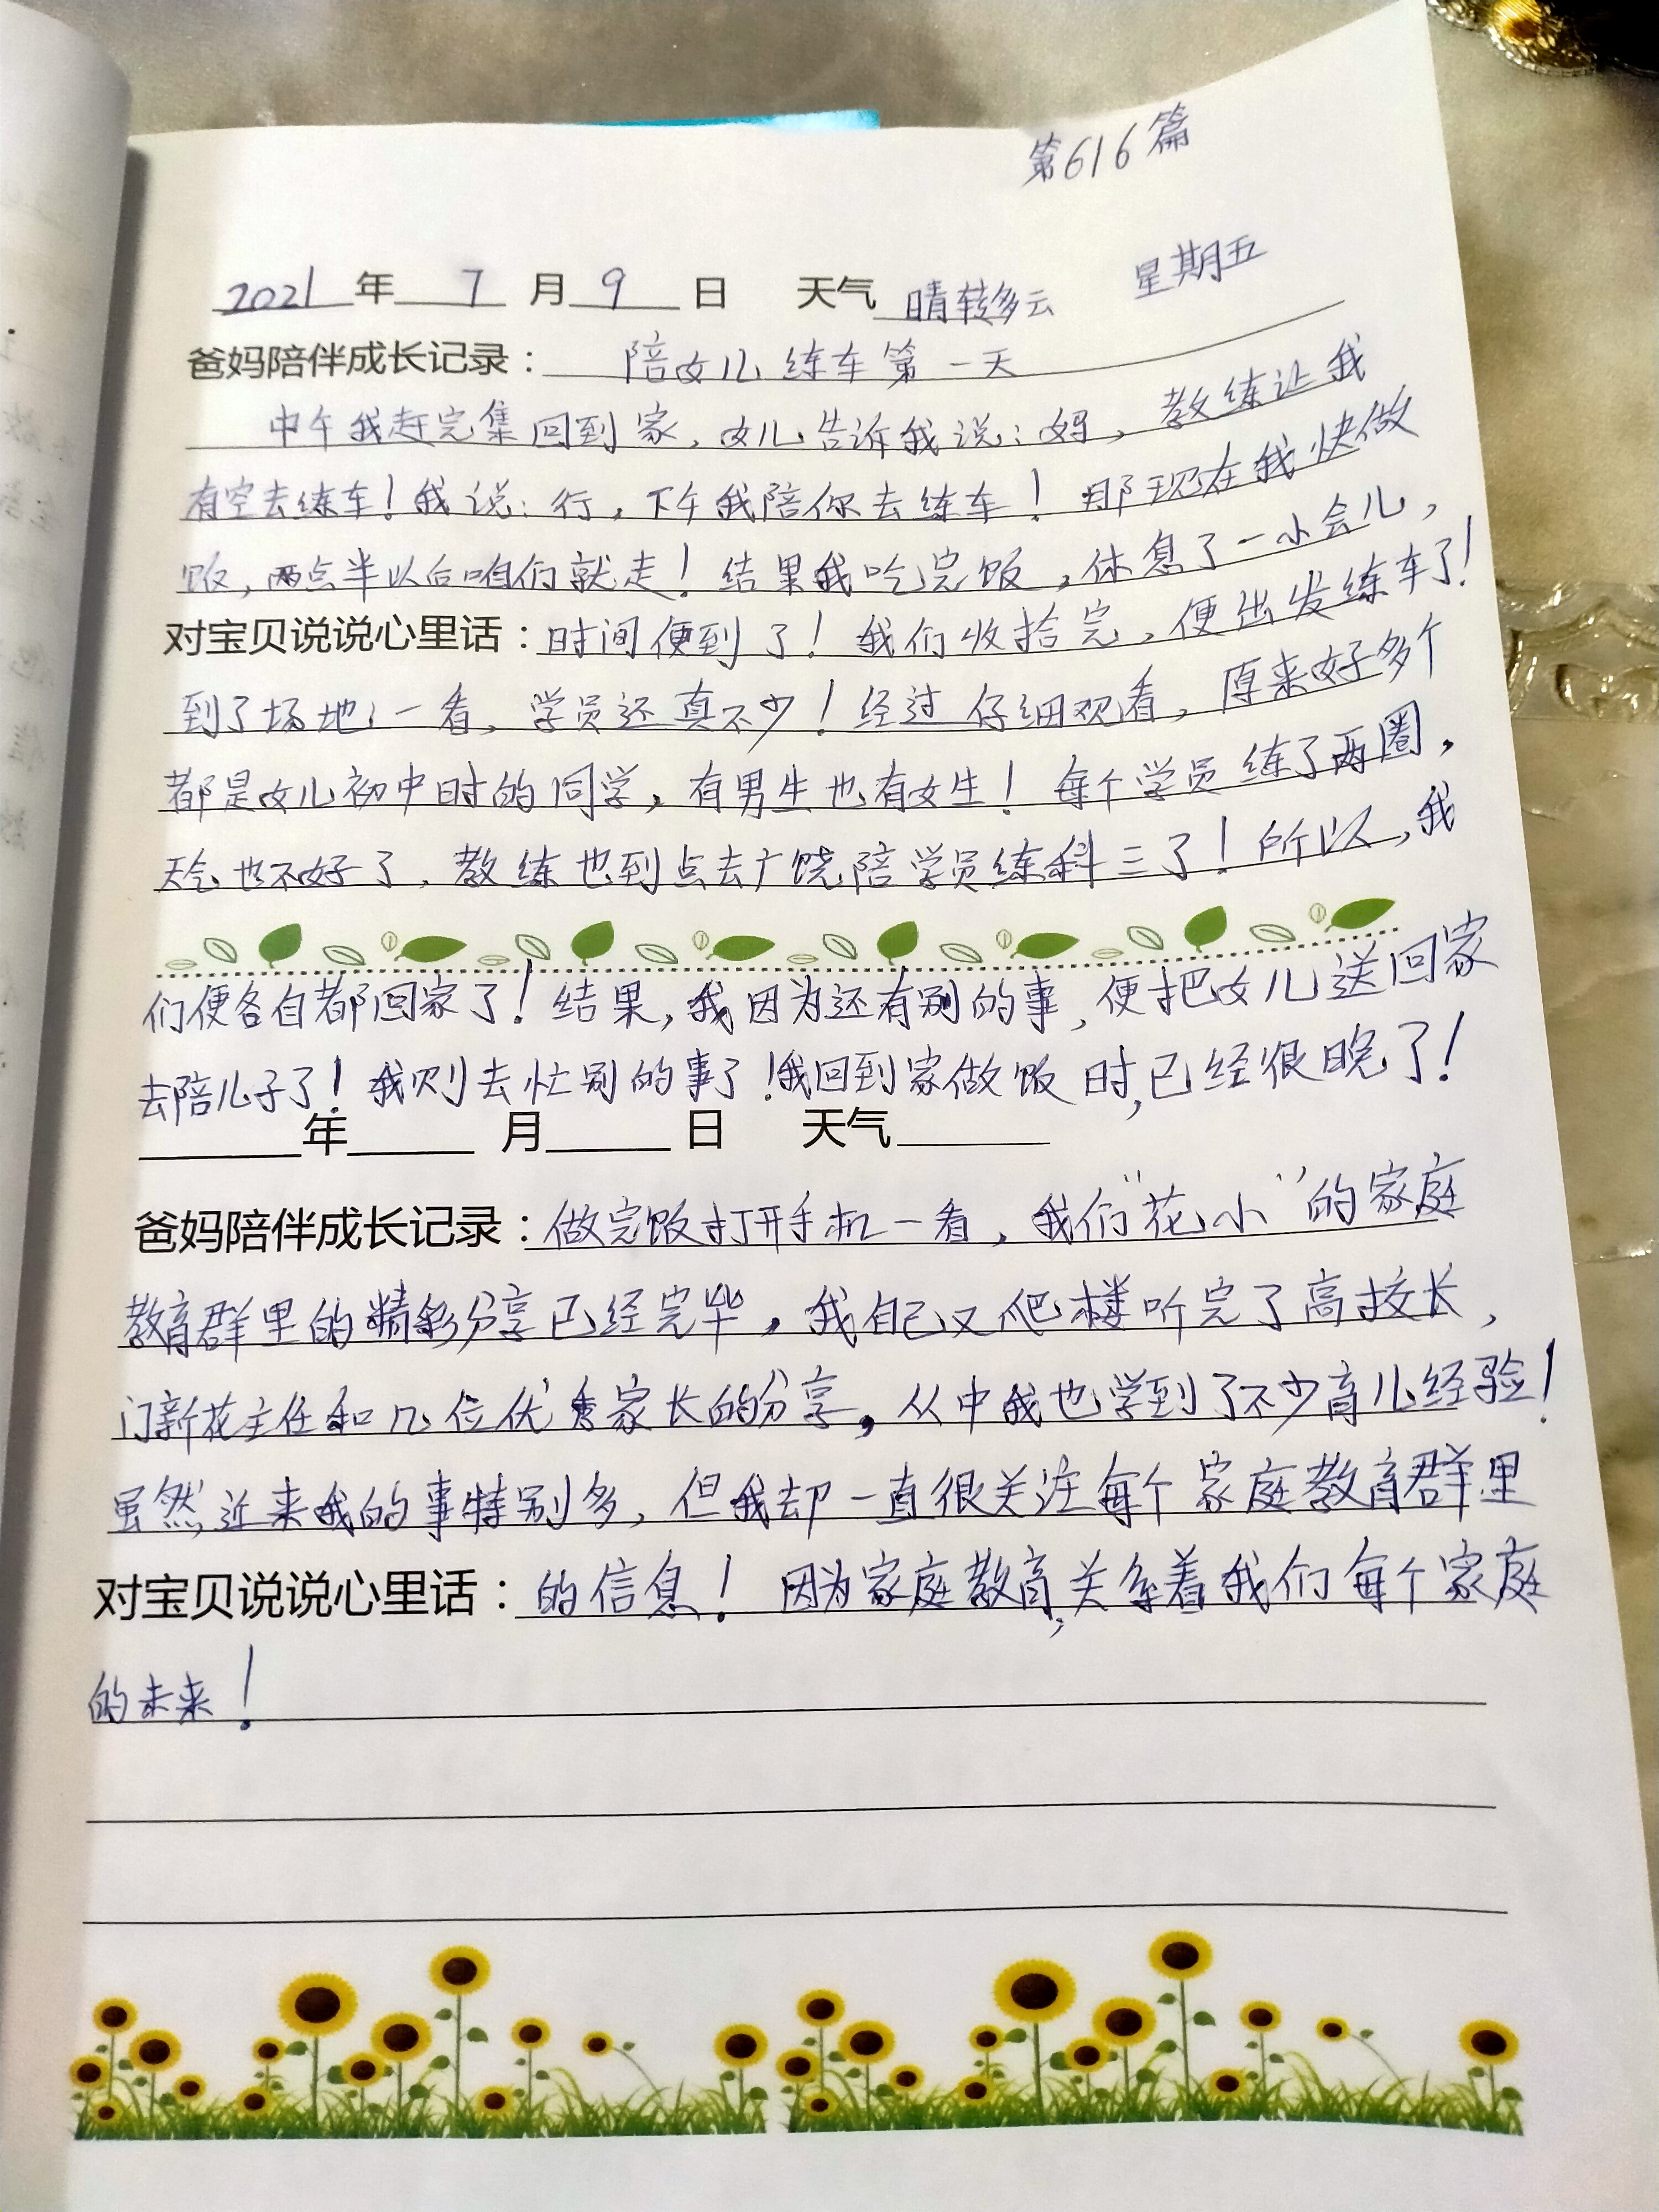 第616篇
2021年 7 月 9 日 天气 晴转多云 星期五
爸妈陪伴成长记录： 陪女儿练车第一天
中午我赶完集回到家，女儿告诉我说：妈，教练让我
有空去练车！我说：行，下午我陪你去练车！那现在我快做
饭，两点半以后咱们就走！结果我吃完饭，休息了一小会儿，
对宝贝说说心里话：时间便到了！我们收拾完，便出发练车了！
到了场地一看，学员还真不少！经过仔细观看，原来好多个
都是女儿初中时的同学，有男生也有女生！每个学员练了两圈，
天气也不好了，教练也到点去广饶陪学员练科三了！所以，我
们便各自都回家了！结果，我因为还有别的事，便把女儿送回家
去陪儿子了！我则去忙别的事了！我回到家做饭时，已经很晚了！
年 月 日 天气
爸妈陪伴成长记录：做完饭打开手机一看，我们“花小”的家庭
教育群里的精彩分享已经完毕，我自己又爬楼听完了高校长，
门新花主任和几位优秀家长的分享，从中我也学到了不少育儿经验！
虽然，近来我的事特别多，但我却一直很关注每个家庭教育群里
对宝贝说说心里话：的信息！因为家庭教育，关系着我们每个家庭
的未来！